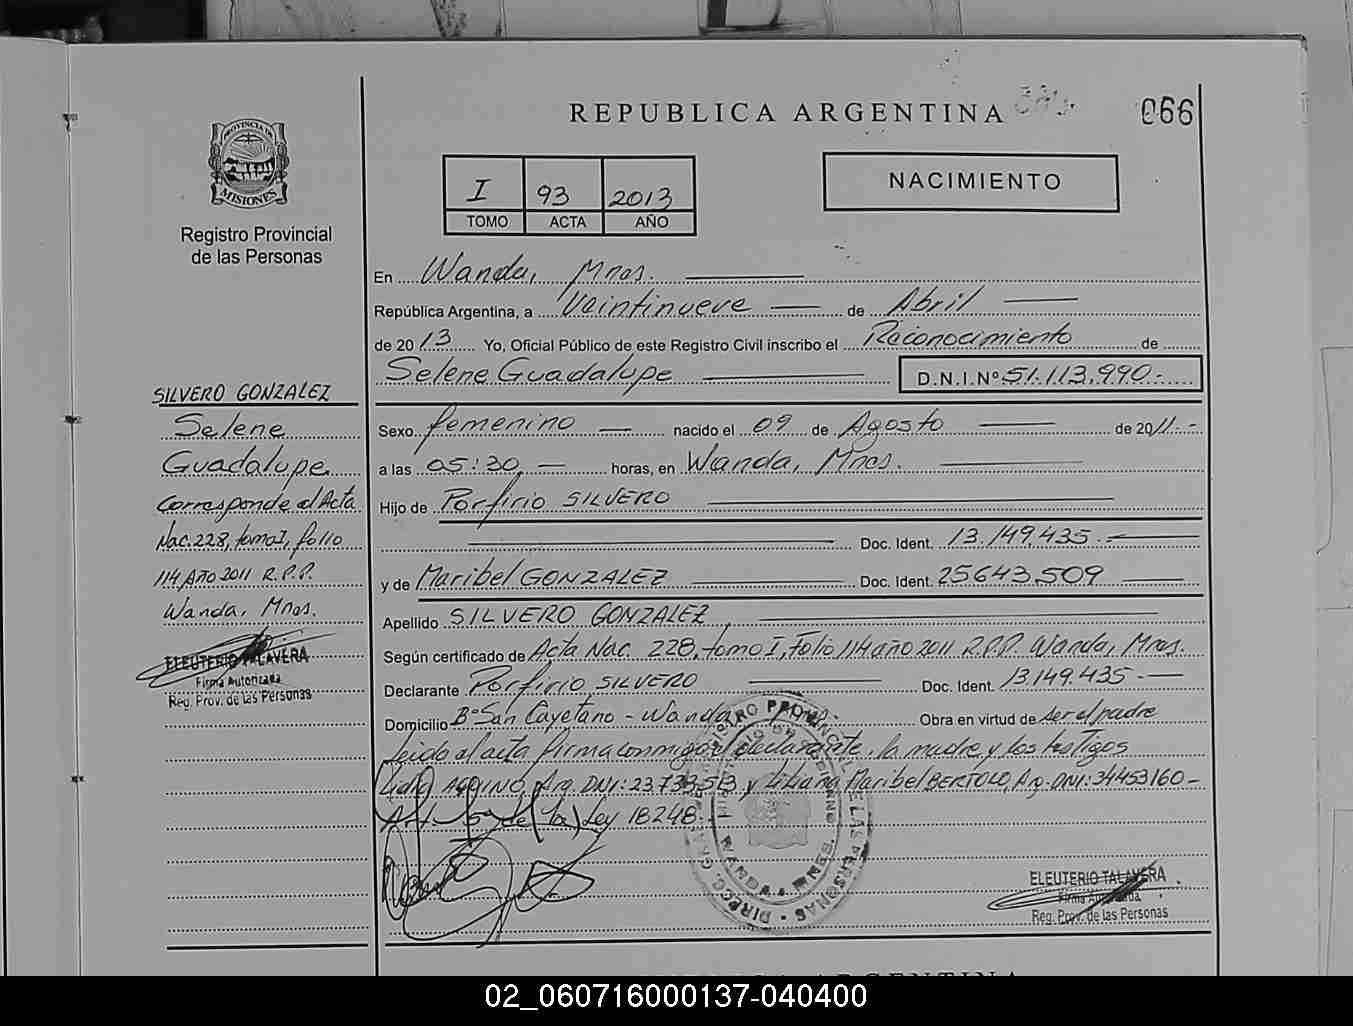 REPUBLICA ARGENTINA
066
PROVINCIA DE
MISIONES
Registro Provincial
de las Personas
I 93 2013
TOMO ACTA AÑO
NACIMIENTO
En Wanda, Mnes.
República Argentina, a Veintinueve de Abril
de 2013 Yo, Oficial Público de este Registro Civil inscribo el Reconocimiento de
Selene Guadalupe D.N.I.Nº 51.113.990.-
Sexo femenino nacido el 09 de Agosto de 2011.-
a las 05:30 horas, en Wanda, Mnes.
Hijo de Porfirio SILVERO
Doc. Ident. 13.149.435.-
y de Maribel GONZALEZ Doc. Ident. 25643.509
Apellido SILVERO GONZALEZ
Según certificado de Acta Nac. 228, tomo I, Folio 114 año 2011 R.P.P. Wanda, Mnes.
Declarante Porfirio SILVERO Doc. Ident. 13149.435.-
Domicilio Bº San Cayetano - Wanda Obra en virtud de ser el padre
leido el acta firma conmigo el declarante, la madre y los testigos
AQUINO, Arg. DNI: 23.733.513 y Liliana Maribel BERTOLO, Arg. DNI: 34453160-
Ley 18248.
SILVERO GONZALEZ
Selene
Guadalupe
Corresponde al Acta
Nac. 228, tomo I, folio
114 Año 2011 R.P.P.
Wanda, Mnes.
ELEUTERIO TALAVERA
Firma Autorizada
Reg. Prov. de las Personas
ELEUTERIO TALAVERA
Firma Autorizada
Reg. Prov. de las Personas
ARGENTINA
02_060716000137-040400